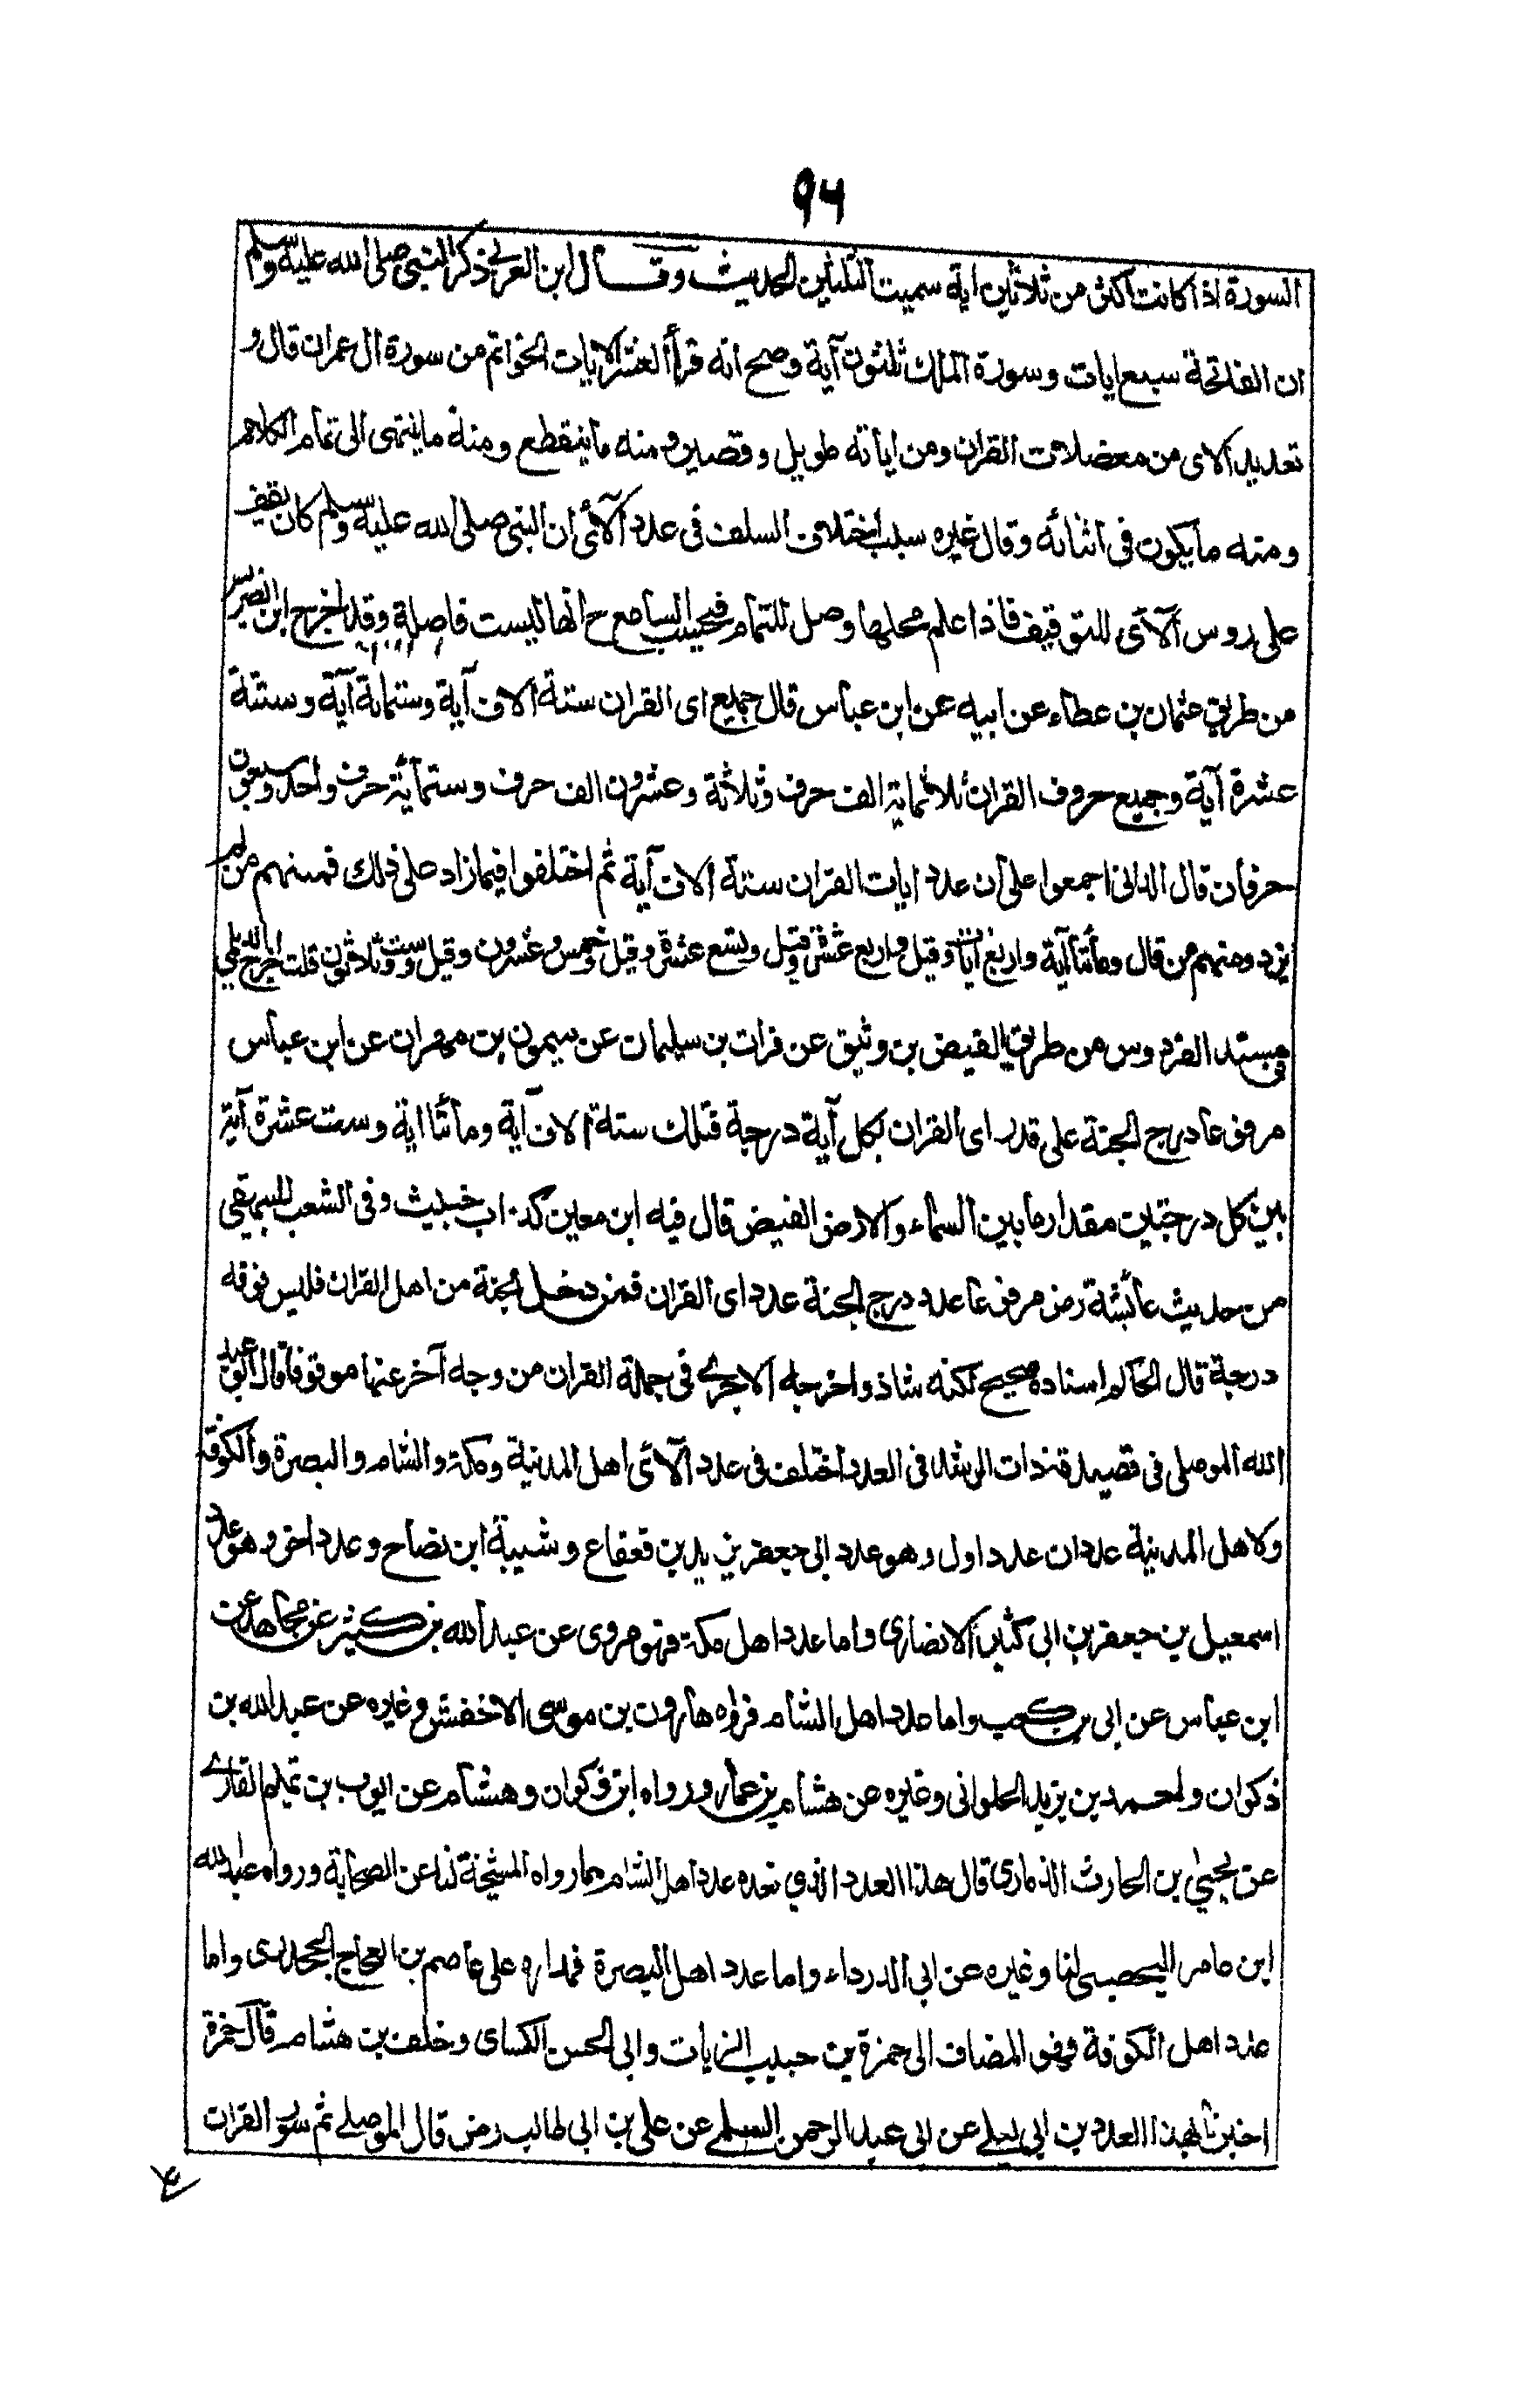 ۹۴
السورة اذا كانت اكثر من ثلاثين اية سميت الثلثين الحديث وقال ابن العربي ذكر النبي صلى الله عليه وسلم
ان الفاتحة سبع ايات وسورة الملك ثلثون آية وصح انه قرأ العشر الايات الخواتم من سورة ال عمران قال و
تعديد الاى من معضلات القران ومن اياته طويل وقصير ومنه ما ينقطع ومنه ما ينتهى الى تمام الكلام
ومنه ما يكون فى اثنائه وقال غيره سبب اختلاف السلف فى عدد الآئى ان النبى صلى الله عليه وسلم كان يقف
على روس الآى للتوقيف فاذا علم محلها وصل للتمام فيحسب السامع ح انها ليست فاصلة وقد اخرج ابن الضريس
من طريق عثمان بن عطاء عن ابيه عن ابن عباس قال جميع اى القران ستة الاف آية وستمائة آية وستة
عشرة آية وجميع حروف القران ثلاثماية الف حرف وثلاثة وعشرون الف حرف وستمآية حرف واحد وسبعون
حرفا قال الدانى اجمعوا على ان عدد ايات القران ستة الاف آية ثم اختلفوا فيما زاد على ذلك فمنهم من لم
يزد ومنهم من قال ومأتا آية واربع آيات وقيل واربع عشرة وقيل وتسع عشرة وقيل وخمس وعشرون وقيل وست وثلاثون قلت اخرج الديلمي
فى مسند الفردوس من طريق الفيض بن وثيق عن فرات بن سليمان عن ميمون بن مهران عن ابن عباس
مرفوعا درج الجنة على قدر اى القران بكل آية درجة فتلك ستة الاف آية ومائتا اية وست عشرة آية
بين كل درجتين مقدار ما بين السماء والارض الفيض قال فيه ابن معين كذاب خبيث وفى الشعب للبيهقي
من حديث عائشة رض مرفوعا عدد درج الجنة عدد اى القران فمن دخل الجنة من اهل القران فليس فوقه
درجة قال الحاكم اسناده صحيح لكنه شاذ واخرجه الاجرى فى حملة القران من وجه آخر عنها موقوفا قال ابو عبد
الله الموصلى فى قصيدة ذات الرشد فى العدد اختلف فى عدد الآئى اهل المدنية ومكة والشام والبصرة والكوفة
ولاهل المدينة عددان عدد اول وهو عدد ابى جعفر يزيد بن قعقاع وشيبة ابن نصاح وعدد اخر وهو عدد
اسمعيل بن جعفر بن ابى كثير الانصارى واما عدد اهل مكة فهو مروى عن عبد الله بن كثير عن مجاهد عن
ابن عباس عن ابى بن كعب واما عدد اهل الشام فرواه هارون بن موسى الاخفش وغيره عن عبد الله بن
ذكوان واحمد بن يزيد الحلوانى وغيره عن هشام بن عمار ورواه ابن ذكوان وهشام عن ايوب بن تميم القارى
عن يحيى بن الحارث الذمارى قال هذا العدد الذي نعده عدد اهل الشام مما رواه المشيخة لنا عن الصحابة ورواه عبد الله
ابن عامر اليحصبى لنا وغيره عن ابى الدرداء واما عدد اهل البصرة فمداره على عاصم بن العجاج الجحدرى واما
عدد اهل الكوفة فهو المضاف الى حمزة بن حبيب الزيات وابى الحسن الكساى وخلف بن هشام قال حمزة
اخبرنا بهذا العدد بن ابى ليلى عن ابى عبد الرحمن السلمى عن على بن ابى طالب رض قال الموصلى ثم سور القران